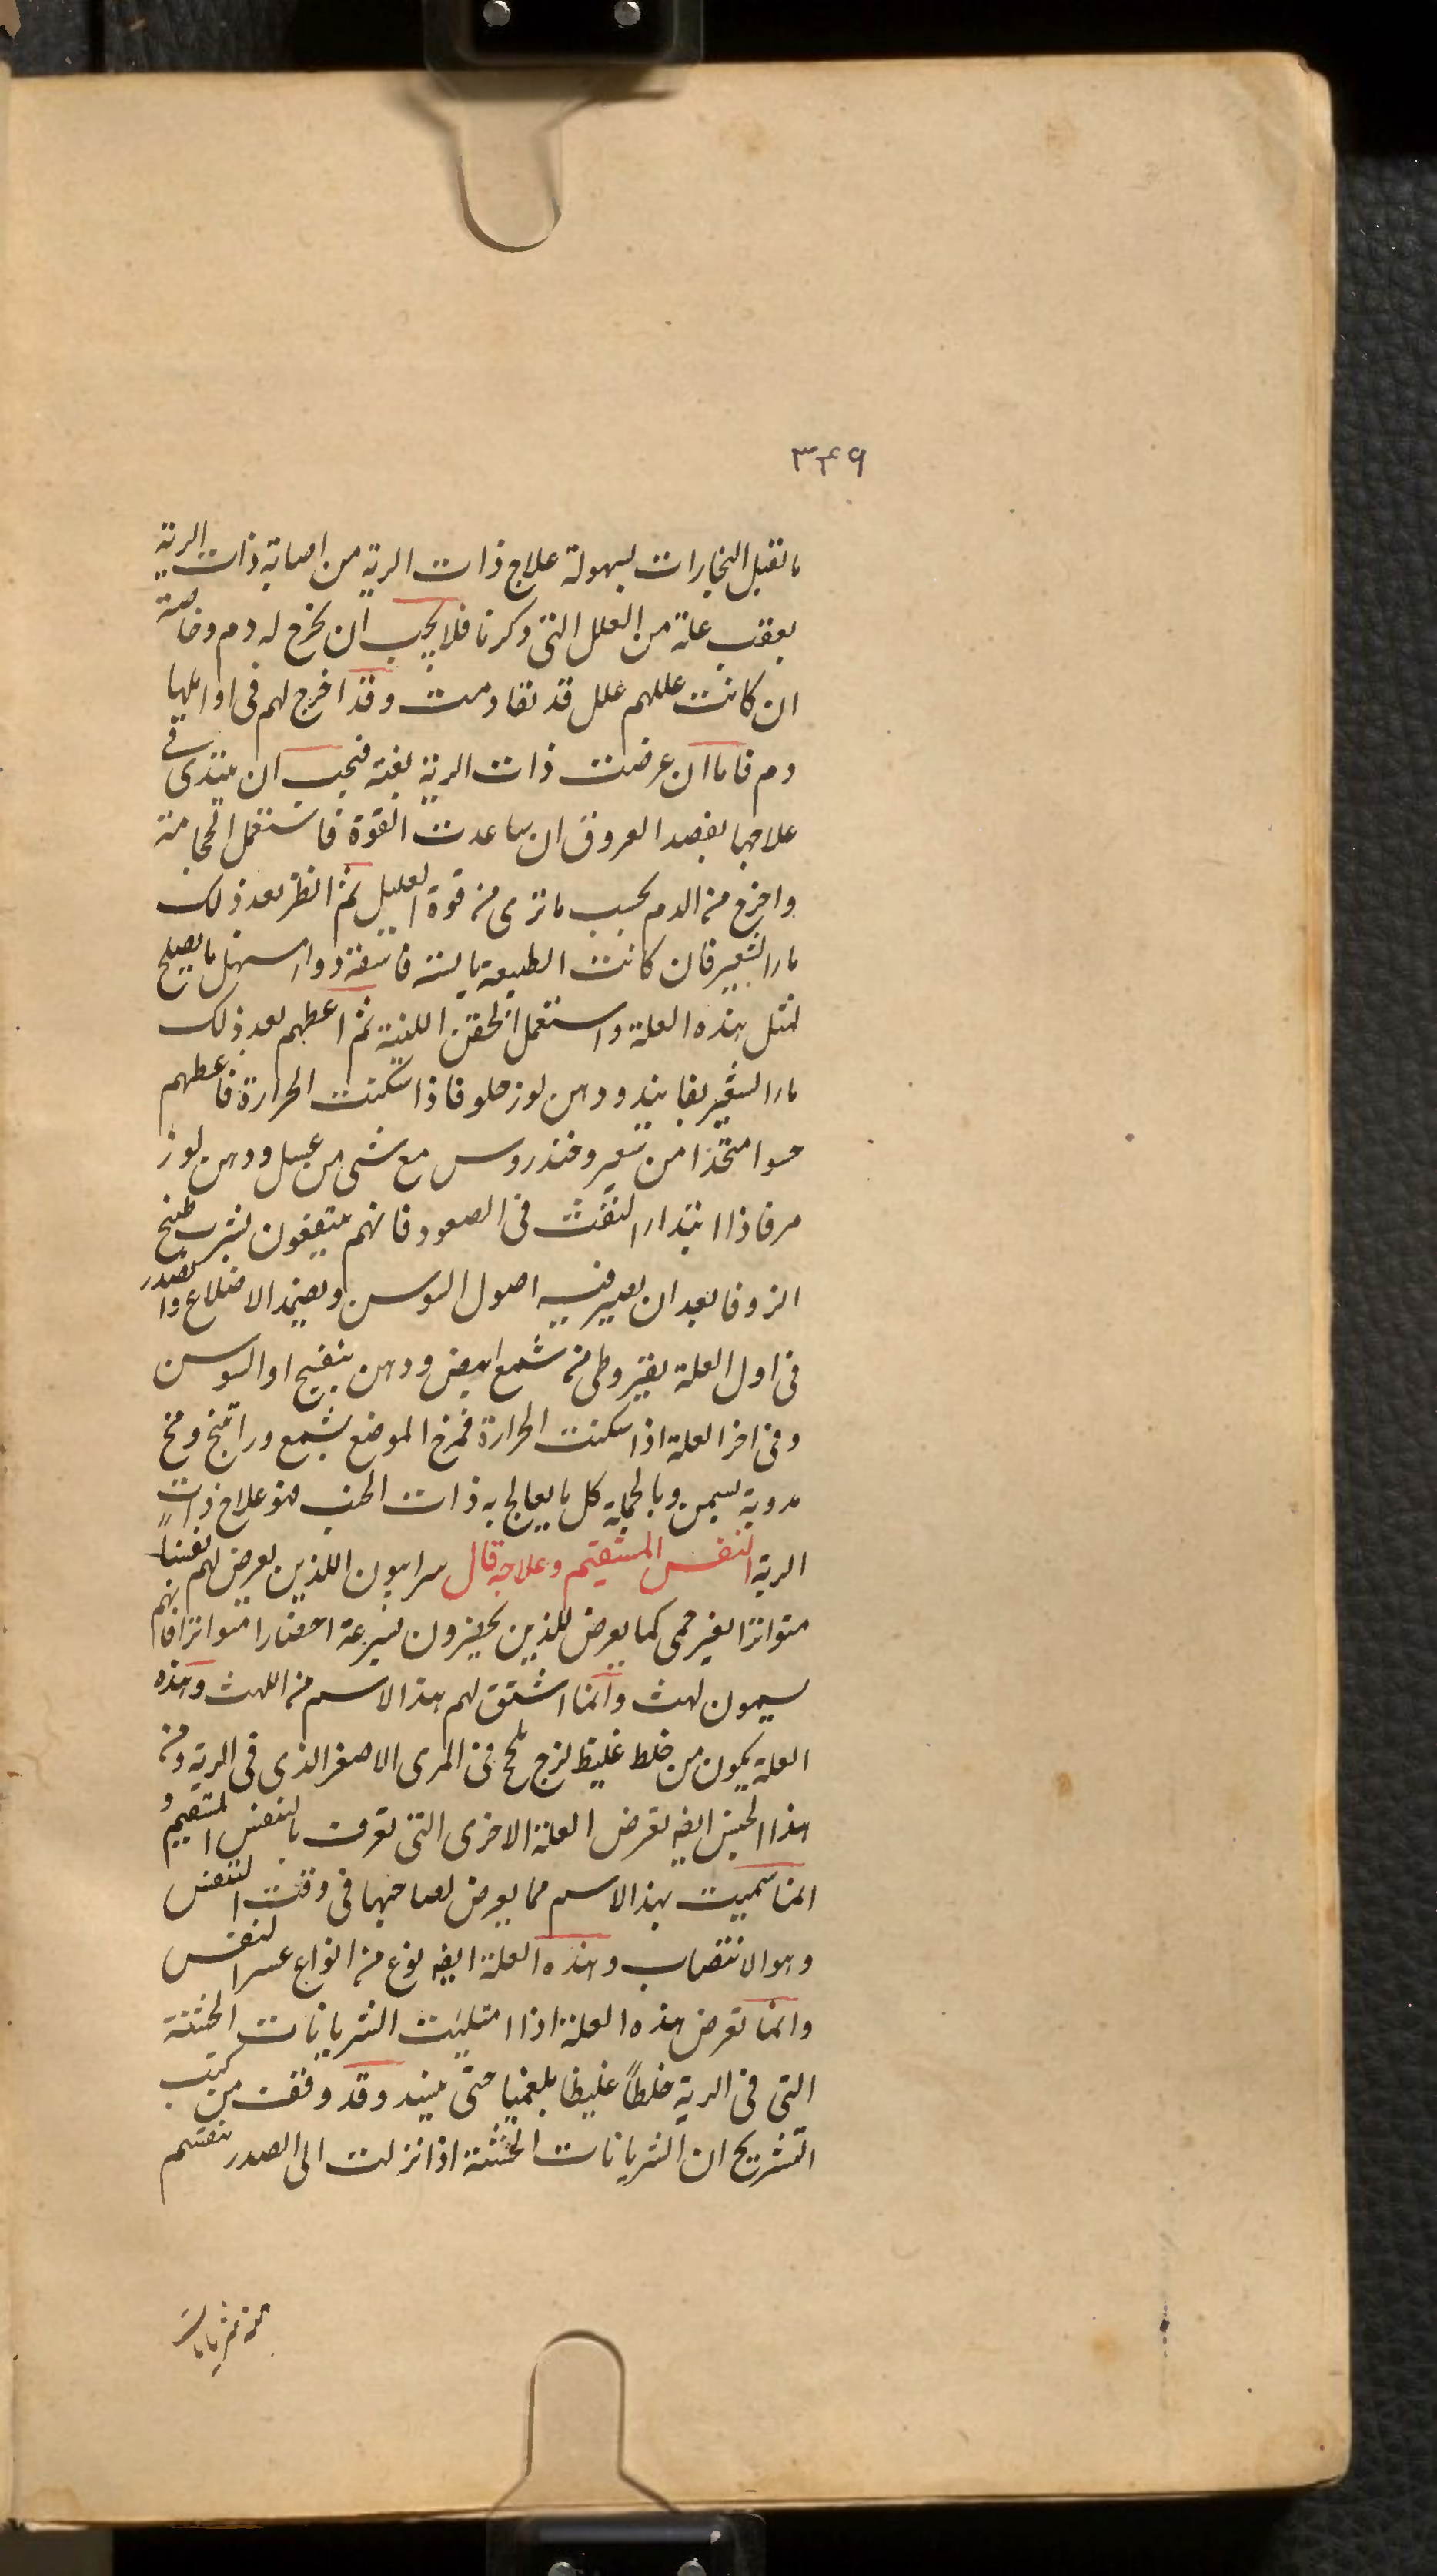 ۳۴۹
ما تقبل البخارات بسهولة علاج ذات الرية من اصابة ذات الرية
بعقب علة من العلل التى ذكرنا فلا يجب ان يخرج له دم وخاصة
ان كانت عللهم علل قد تقادمت وقد اخرج لهم فى اوايلها
دم فاما ان عرضت ذات الرية بغتة فيجب ان يبتدى فى
علاجها بفصد العروق ان ساعدت القوة فاستعمل الحجامة
واخرج من الدم بحسب ما ترى من قوة العليل ثم انظر بعد ذلك
ماء الشعير فان كانت الطبيعة يابسة فاسقه دواء مسهل ما يصلح
لمثل هذه العلة واستعمل الحقن اللينة ثم اعطهم بعد ذلك
ماء الشعير بفانيد ودهن لوز حلو فاذا سكنت الحرارة فاعطهم
حسوا متخذا من شعير وخندروس مع شى من عسل ودهن لوز
مر فاذا ابتداء النفث فى الصعود فانهم ينتفعون بشرب طبيخ
الزوفا بعد ان يصير فيه اصول السوسن ويضمد الاضلاع والصدر
فى اول العلة بقيروطى من شمع ابيض ودهن بنفسج او السوسن
وفى اخر العلة اذا سكنت الحرارة فمرخ الموضع بشمع وراتينج ومخ
مدوبة بسمن وبالجملة كل ما يعالج به ذات الجنب فهو علاج ذات
الرية النفس المستقيم وعلاجه قال سرابيون اللذين يعرض لهم نفساً
متواترا بغير حمى كما يعرض للذين يحضرون بسرعة احضارا متواترا فانهم
يسمون لهث وانما اشتق لهم هذا الاسم من اللهث وهذه
العلة يكون من خلط غليظ لزج يلحج فى المرى الاصغر الذى فى الرية ومن
هذا الجنس ايضه تعرض العلة الاخرى التى تعرف بالنفس المستقيم و
انما سميت بهذا الاسم مما يعرض لصاحبها فى وقت التنفس
وهو الانتصاب وهذه العلة ايضه نوع من انواع عسر النفس
وانما تعرض هذه العلة اذا امتليت الشريانات الخشنة
التى فى الرية خلطاً غليظا بلغميا حتى ينسد وقد وقفت من كتب
التشريح ان الشريانات الخشنة اذا نزلت الى الصدر تنقسم